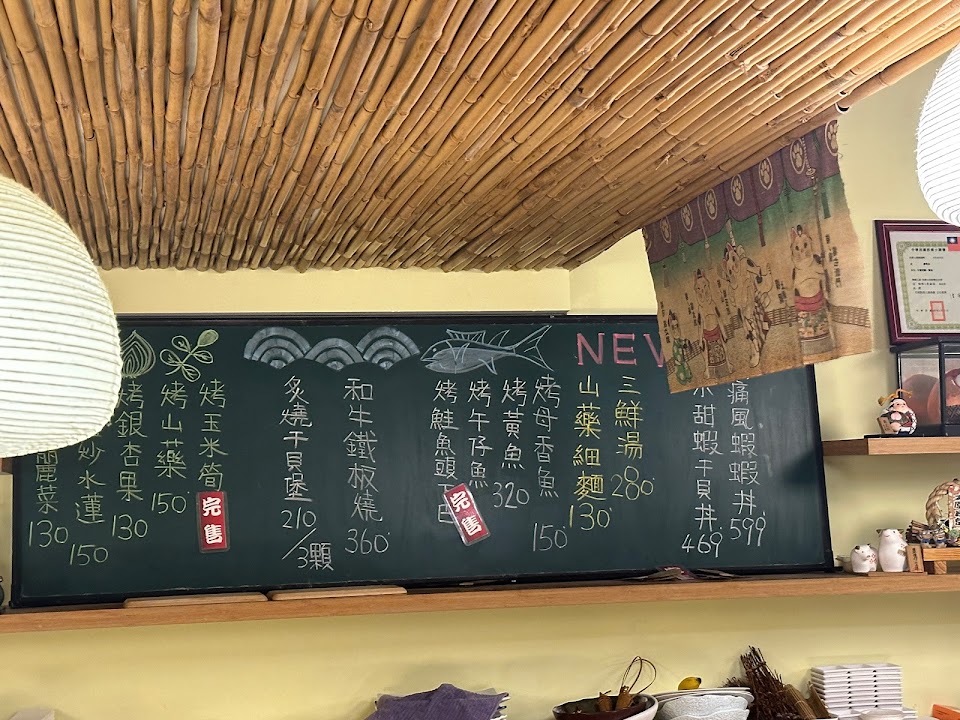 NEW
痛風蝦蝦丼 599
甜蝦干貝丼 469
三鮮湯 280
山藥細麵 130
烤母香魚 150
烤黃魚 320
烤午仔魚
烤鮭魚頭
完售
和牛鐵板燒 360
炙燒干貝堡 210/3顆
烤玉米筍
完售
烤山藥 150
烤銀杏果 130
炒水蓮 150
麗菜 130